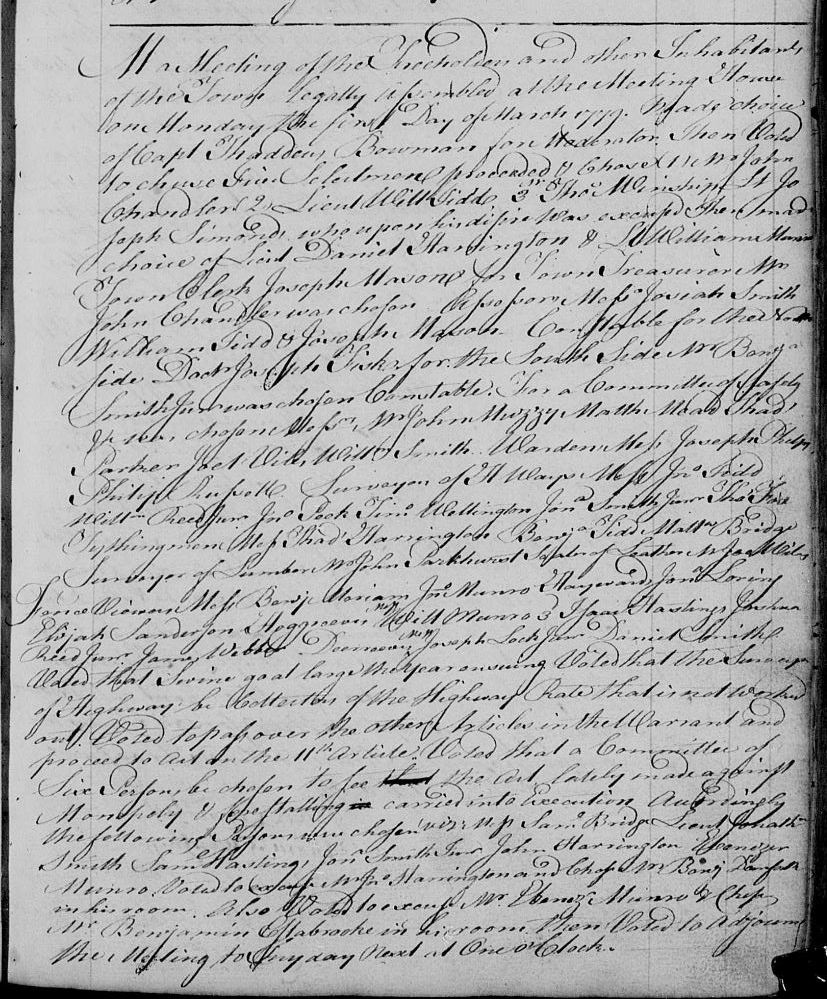 At a Meeting of the Freeholders and other Inhabitants
of the Town Legally Assembled at the Meeting House
on Monday the first Day of March 1779. Made choice
of Capt Thaddeus Bowman for Moderator. Then Voted
to chuse five Selectmen proceeded & Chose 1 Mr John
Chandler 2 Lieut Willm Tidd 3 Thos Winship Lt Jo
seph Simonds who upon his desire was excused Then made
choice of Lieut Daniel Harrington & Lt William Munro
Town Clerk Joseph Mason for Town Treasurer Mr
John Chandler was chosen Assessors Messrs Josiah Smith
William Tidd & Joseph Mason Constable for the North
side Doctr Joseph Fisk for the South Side Mr Benja
Smith Junr was chosen Constable. For a Committee of safety
&c was chosen Messrs Mr John Muzzy Matthw Mead Thads
Parker Joel Viles Willm Smith. Wardens Messrs Joseph
Philip Russell. Surveyors of H Ways Messrs Jno Bridge
Willm Reed Junr Jno Peck Timo Wellington Jona Smith Junr Thos Fisk
Tythingmen Messrs Thads Harrington Benja Tidd Matthw Bridge
Surveyor of Lumber Mr John Parkhurst Sealer of Leather Mr Joel Viles
Fence Viewers Messrs Benja Meriam Jno Munro Haywards Jona Loring
Elijah Sanderson Hogreeves Messrs Will Munro 3 Isaac Hastings Joshua
Reed Junr James Webber Deerreeves Messrs Joseph Lock Junr Daniel Smith
Voted that Swine go at large the year ensuing Voted that the Surveyors
of Highways be Collectors of the Highway Rate that is not worked
out. Voted to pass over the other Articles in the Warrant and
proceed to Act on the 11th Article. Voted that a Committee of
Six Persons be chosen to see the Act lately made against
Monopoly & forestalling carried into Execution Accordingly
the following Persons were chosen viz: Messrs Saml Bridge Lieut Jonathn
Smith Saml Hastings Jona Smith Junr John Harrington Ebenezer
Munro Voted to excuse Mr Jno Harrington and Chose Mr Benja Danforth
in his room. Also Voted to excuse Mr Ebenezr Munro & Chose
Mr Benjamin Estabrooke in his room Then Voted to Adjourn
the Meeting to Fryday Next at One o'Clock.